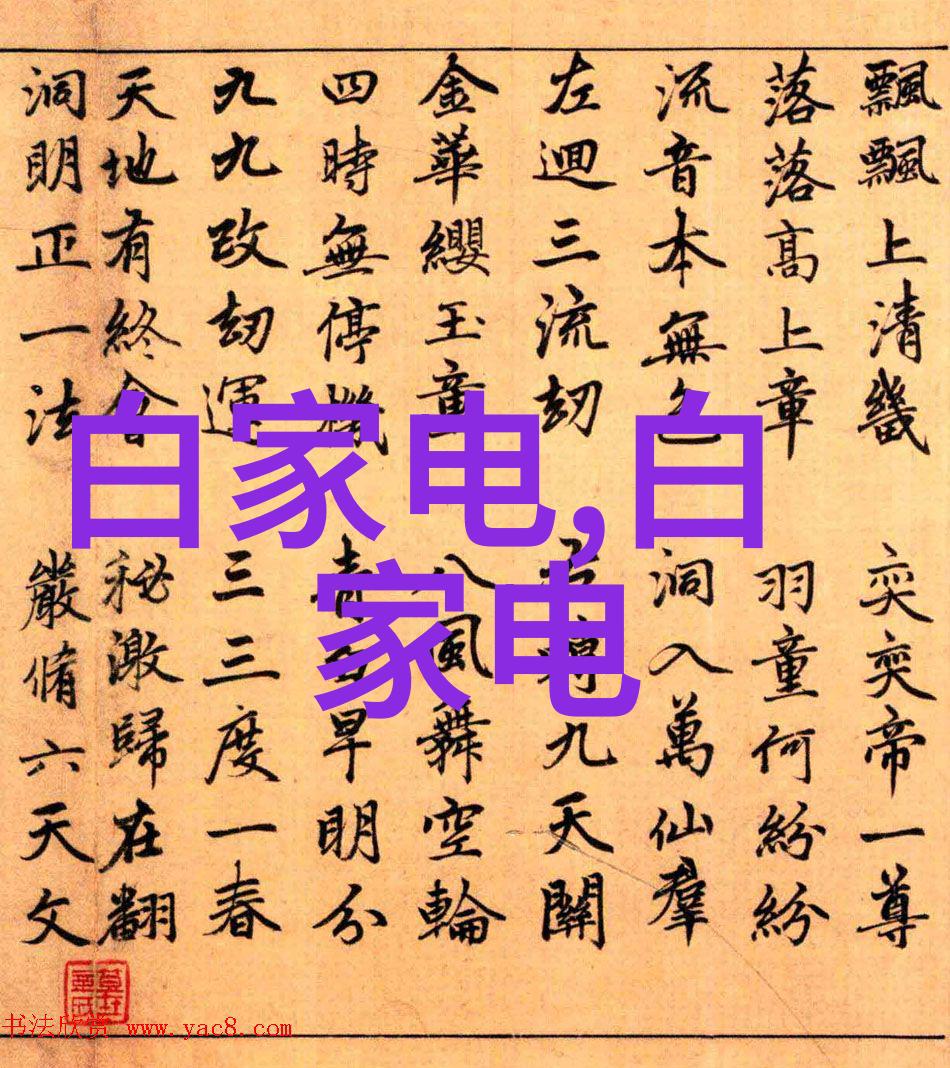 飄飄上清畿 奕奕帝一尊
落落高上章 羽童何紛紛
流音本無色 洞入萬仙羣
左迴三流劫 九天關
金華纓玉童 八風舞空輪
四時無停機 早明分
九九改劫運 三三度一春
天地有終會 秘激歸在翻
洞明正一法 嚴脩六天文
白家电,白
家电
书法欣赏 www.yac8.com